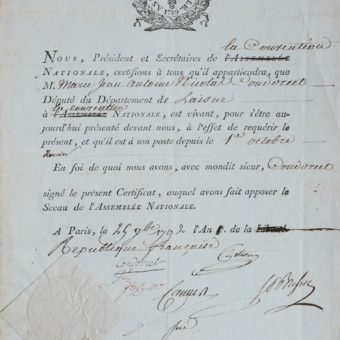 la convention
NOUS, Président et Secrétaires de l'ASSEMBLÉE
NATIONALE, certifions à tous qu'il appartiendra, que
M. Marie Jean Antoine Nicolas Condorcet
Député du Département de Laisne
la convention
à l'ASSEMBLÉE NATIONALE, est vivant, pour s'être au-
jourd'hui présenté devant nous, à l'effet de requérir le
présent, et qu'il est à son poste depuis le 1er octobre
dernier
En foi de quoi nous avons, avec mondit sieur, Condorcet
signé le présent Certificat, auquel avons fait apposer le
Sceau de l'ASSEMBLÉE NATIONALE.
A Paris, le 25 9bre 1792 l'An 1er de la Liberté
République française
condorcet